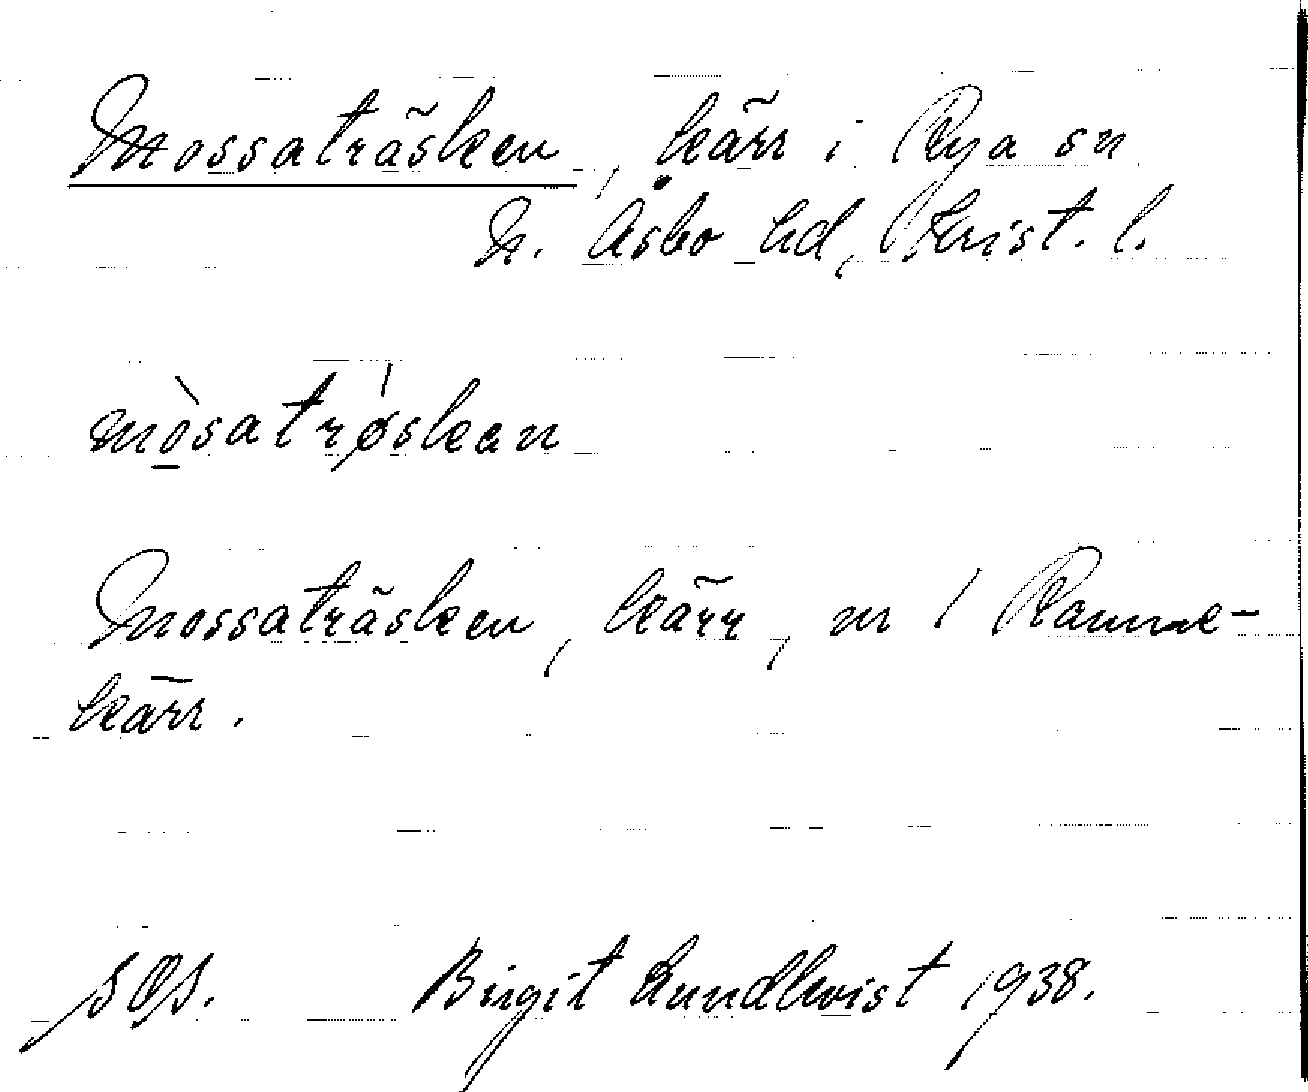 Mossaträsken, kärr i Rya sn
N. Åsbo hd, Krist. l.
mò̱satrǿskan
Mossaträsken, kärr, nr 1 Ramne-
kärr.
SOS. Birgit Lundkvist 1938.